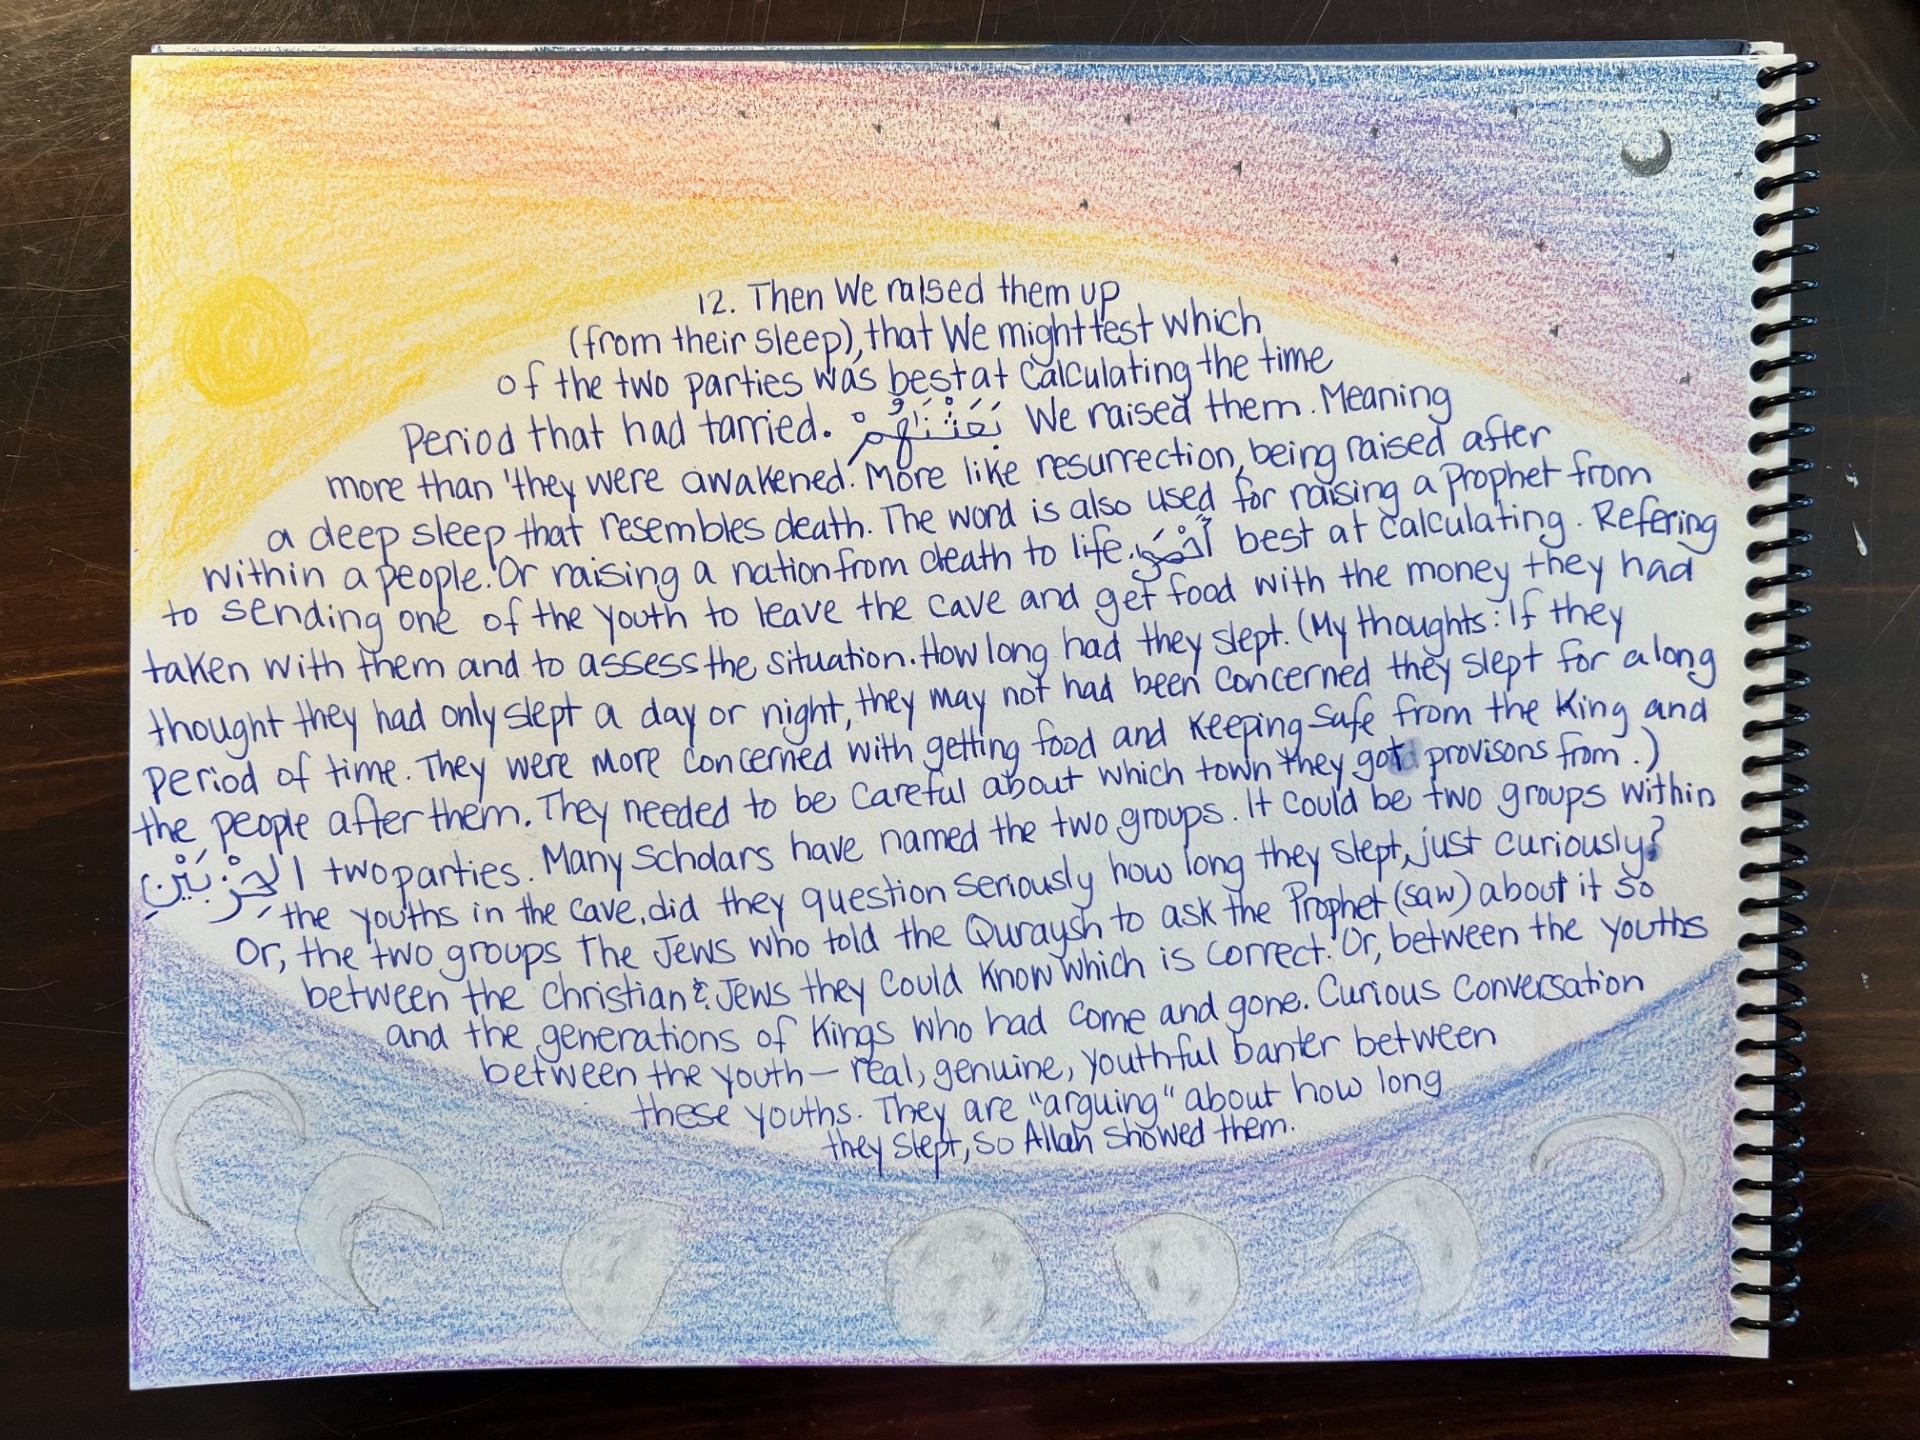 12. Then We raised them up
(from their sleep), that We might test which
of the two parties was best at calculating the time
Period that had tarried. بَعَثْنَاهُمْ We raised them. Meaning
more than 'they were awakened. More like resurrection, being raised after
a deep sleep that resembles death. The word is also used for raising a Prophet from
within a people. Or raising a nation from death to life. أَحْصَى best at calculating. Refering
to sending one of the youth to leave the cave and get food with the money they had
taken with them and to assess the situation. How long had they slept. (My thoughts: If they
thought they had only slept a day or night, they may not had been concerned they slept for a long
period of time. They were more concerned with getting food and keeping safe from the King and
the people after them. They needed to be careful about which town they got provisons from.)
الحِزْبَيْنِ two parties. Many scholars have named the two groups. It could be two groups within
the youths in the cave, did they question seriously how long they slept, just curiously?
Or, the two groups The Jews who told the Quraysh to ask the Prophet (saw) about it so
between the Christian & Jews they could know which is correct. Or, between the youths
and the generations of Kings who had come and gone. Curious conversation
between the youth — real, genuine, youthful banter between
these youths. They are "arguing" about how long
they slept, so Allah showed them.